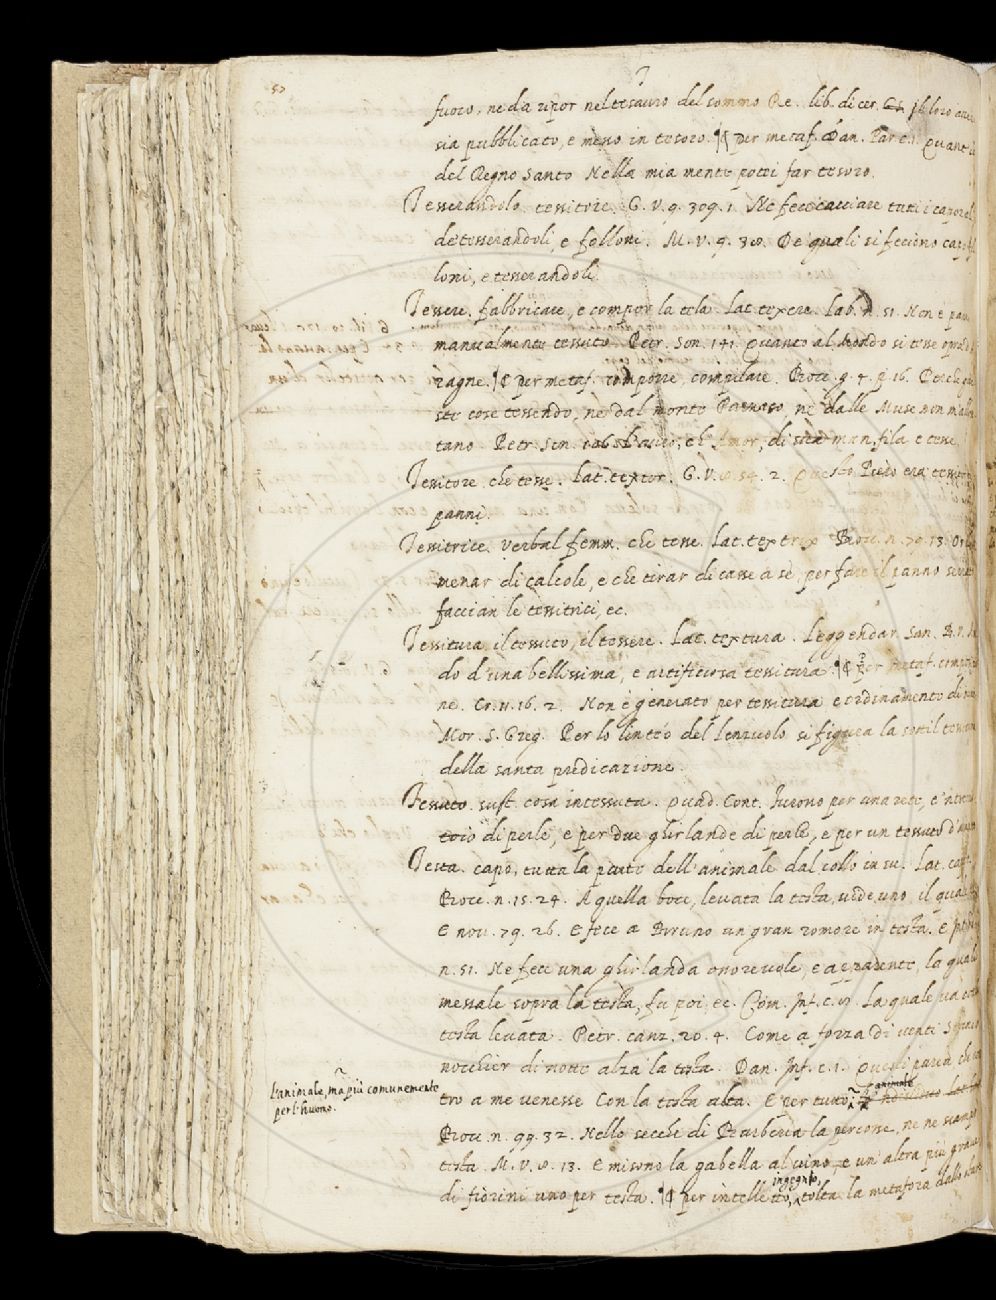 T
fuoco, ne da ripor nel tesauro del sommo Re. lib. di cer.
sia pubblicato, e meno in tesoro. ¶ per metaf. Dan. Par. c. 1. Quant'
del Regno santo Nella mia mente potei far tesoro.
Tesserandolo. tessitore. G. V. 9. 309. 1. Ne fece cacciare tutti i caporal
de tesserandoli, e folloni. M. V. 9. 38. De quali si feciono capo fol
loni, e tesserandoli.
Tessere. fabbricare, e compor la tela. Lat. texere. Lab. n. 51. Non è pan
manualmente tessuto. Petr. Son. 141. Quanto al Mondo si tesse opra di
ragne. ¶ per metaf. comporre, compilare. Bocc. g. 4. p. 16. Perchè que
ste cose tessendo, ne dal monte Parnaso, ne dalle Muse non m'allon
tano. Petr. Son. ch' Amor, di sua man, fila e tesse.
Tessitore. che tesse. Lat. textor. G. V. 8. 54. 2. Questo Piero era tessitor
panni.
Tessitrice. verbal femm. che tesse. Lat. textrix. Bocc. n. 79. 13.
menar di calcole, e che tirar di casse a sè, per fare il panno serrato
faccian le tessitrici, ec.
Tessitura. il tessuto, il tessere. Lat. textura. Leggendar. San. B. V.
do d'una bellissima, e artificiosa tessitura. ¶ per metaf. composizio
ne. Cr. 11. 16. 2. Non è generato per tessitura e ordinamento di
Mor. S. Greg. Per lo linteo del lenzuolo si figura la sottil tessitura
della santa predicazione.
Tessuto. sust. cosa intessuta. Quad. Cont. Furono per una rete, e 'ntrec
toio di perle, e per due ghirlande di perle, e per un tessuto d'
Testa. capo, tutta la parte dell'animale dal collo in su. Lat. caput.
Bocc. n. 15. 24. A quella boce, levata la testa, vide uno, il quale
E nov. 79. 26. E fece a Bruno un gran romore in testa. E
n. 51. Ne fece una ghirlanda onorevole, e apparente, la quale
messale sopra la testa, fu poi, ec. Com. Inf. c. La quale va con
testa levata. Petr. canz. 20. 4. Come a forza di venti Stanco
nocchier di notte alza la testa. Dan. Inf. c. 1. Questi parea, che con
l'animale, ma più comunemente
per l'huomo.
tro a me venesse Con la testa alta. E per tutto
animale
Bocc. n. 99. 32. Nelle secche di Barberia la percosse, ne ne scampò
testa. M. V. 8. 13. E misono la gabella al vino, e un'altra più grave
ingegno,
di fiorini uno per testa. ¶ per intelletto, tolta la metafora dallo